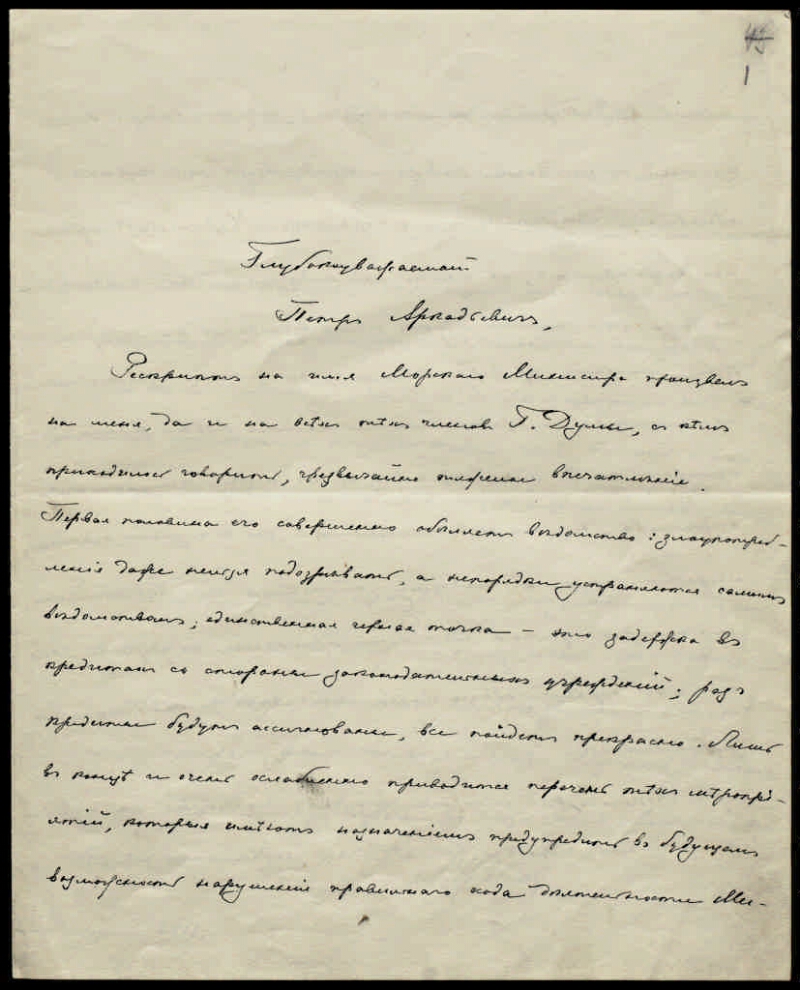 45
1
Глубокоуважаемый
Петръ Аркадьевичъ,
Рескриптъ на имя Морского Министра произвелъ
на меня, да и на всѣхъ тѣхъ членовъ Г. Думы, съ кѣмъ
приходилось говорить, чрезвычайно тяжелое впечатлѣніе.
Первая половина его совершенно обѣляетъ вѣдомство: злоупотреб-
ленія даже нельзя подозрѣвать, а непорядки устраняются самимъ
вѣдомствомъ; единственная черная точка – это задержка въ
кредитахъ со стороны законодательныхъ учрежденій; разъ
кредиты будутъ ассигнованы, все пойдетъ прекрасно. Лишь
въ концѣ и очень ослабленно приводится перечень тѣхъ мѣропрі-
ятій, которыя имѣютъ назначеніемъ предупредить въ будущемъ
возможность нарушенія правильнаго хода дѣятельности Ми-